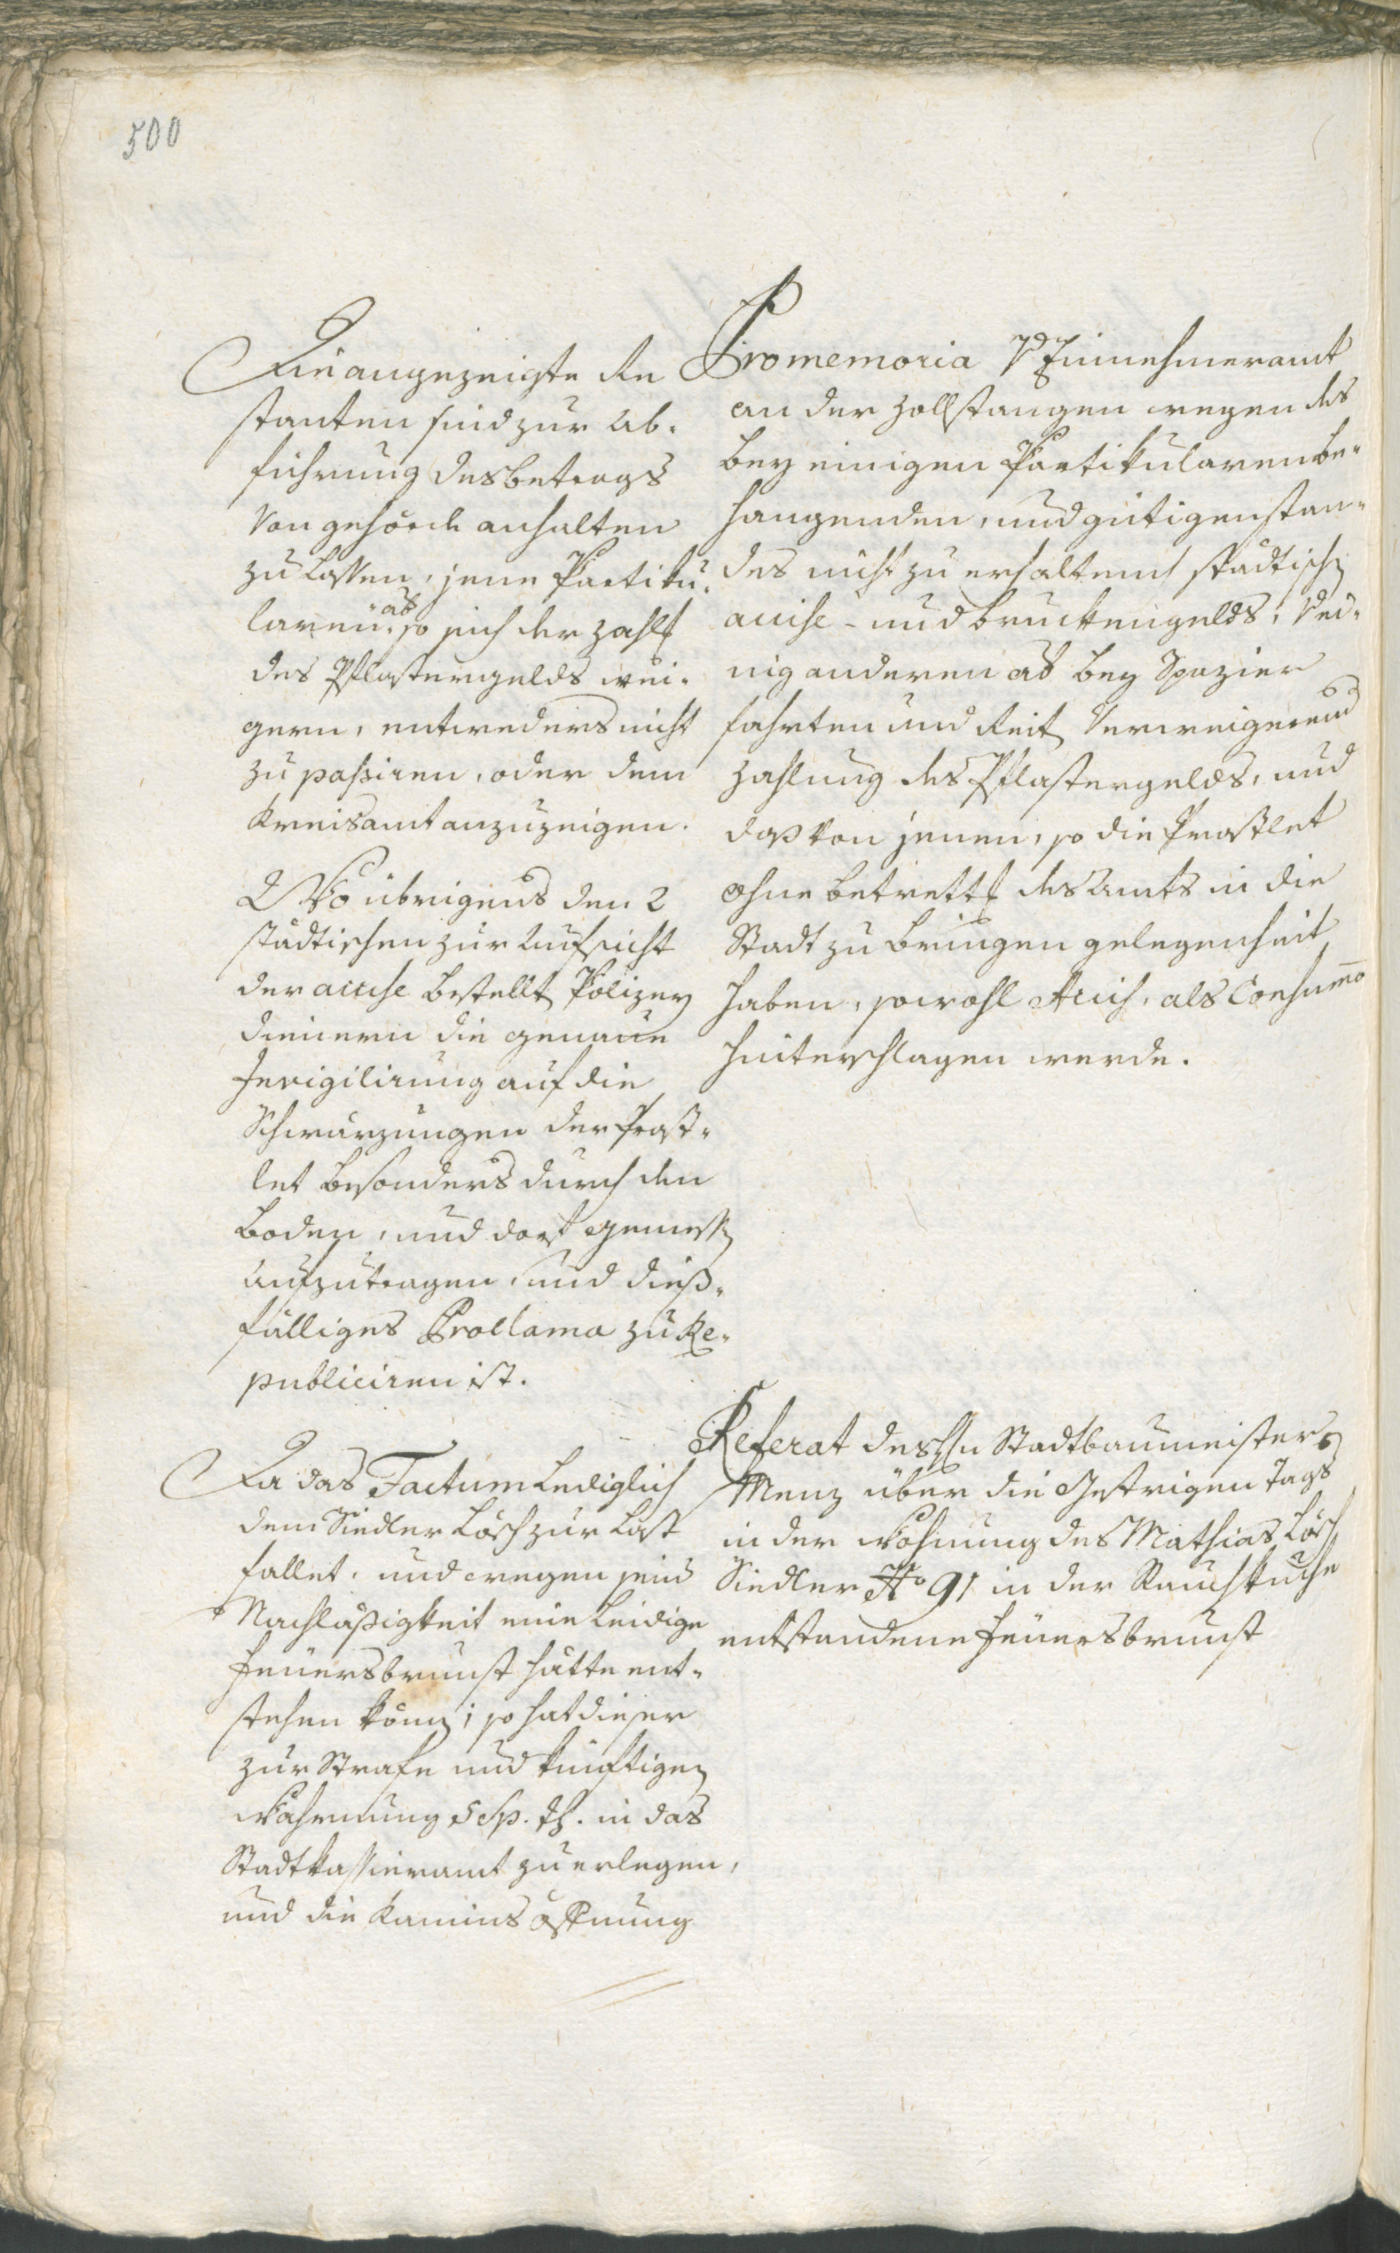 500
Die angezeigte Re
stanten sind zur Ab-
führung des Betrags
von gehörde anhalten
zu lassen, jene Partiku-
laren aber so sich der Zahlg
des Pflastergelds wei-
gern, entweders nicht
zu passiren, oder dem
Kreisamt anzuzeigen.
Wo übrigens den 2
städtischen zur Aufsicht
der accise bestellt Polizey
dienern die genaue
Invigilirung auf die
Schwärzungen der Prast-
let besonders durch den
Boden, und dort gemess
aufzutragen, und dieß-
fälliges Proclama zu Re-
publiciren ist.
Da das Factum lediglich
dem Siedler Lösch zur Last
fallet, und wegen sein
Nachläßigkeit eine leidige
Feuersbrunst hätte ent-
stehen könn; so hat dieser
zur Strafe und künftigen
Wahrnung 5 Sp. Th. in das
Stadtkassieramt zu erlegen,
und die Kamins öffnung
Promemoria Einnehmeramt
an der Zollstangen wegen des
bey einigen Partikularen be-
hangenden, und gütigenstan-
des nicht zu erhaltend städtisch
accise- und Bruckengelds,
nig anderen als bey Spazier
fahrten und Reit verweigerend
Zahlung des Pflastergelds, und
daß von jenen, so die Prastlet
ohne Betrettg des Amts in die
Stadt zu bringen gelegenheit
haben, sowohl Accis, als Consummo
hinterschlagen werde.
Referat des Hn Stadtbaumeisters
Menz über die gestrigen Tags
in der Wohnung des Mathias Lösch
Siedler No 91 in der Rauchkuche
entstandene Feuersbrunst